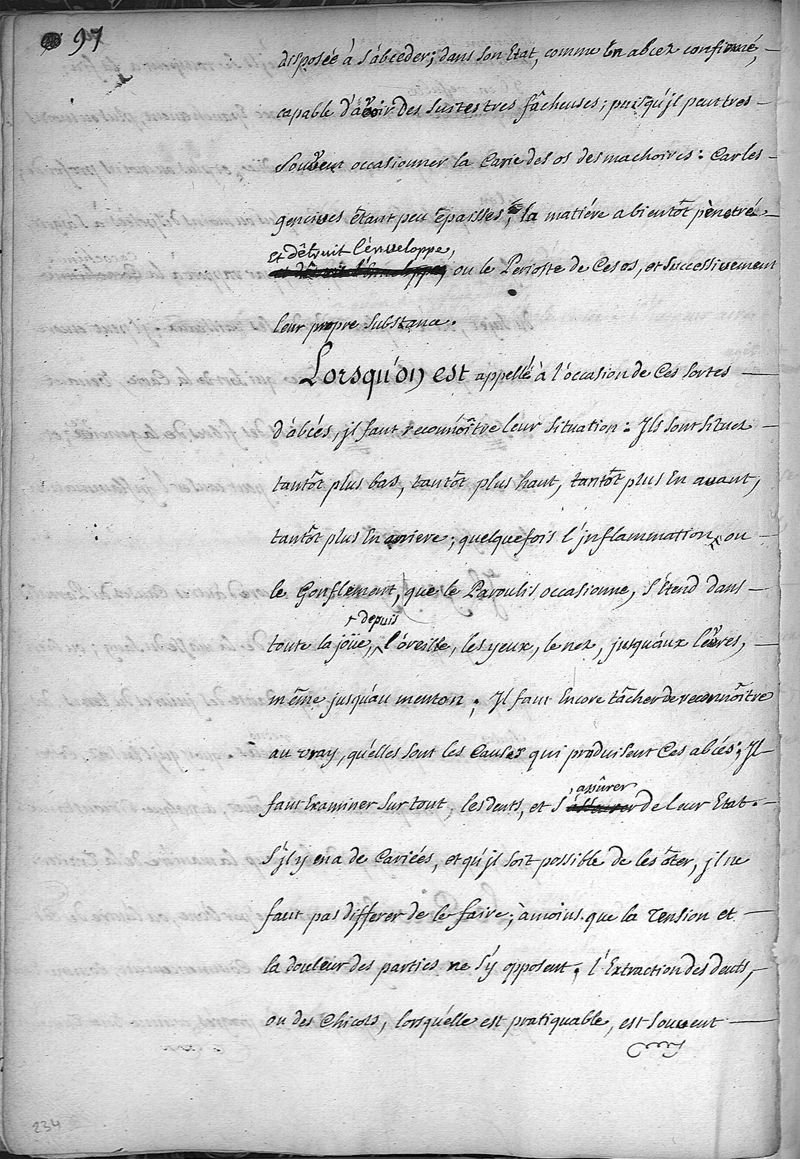 97
disposée à s'abceder; dans son Etat, comme un abcez confirmé,
capable d'avoir des suites tres fâcheuses; puisqu'jl peut tres
souvent occasionner la Carie des os des machoires: Car les
gencives êtant peu épaisses, la matiére a bientôt pènetré
et dêtruit l'énveloppe,
ou le Perioste de Ces os, et successivement
leur propre substance.
Lorsqu'on est appellé à l'occasion de Ces sortes
d'abcés, jl faut reconnoître leur situation: Jls sont situez
tantôt plus bas, tantôt plus haut, tantôt plus En avant,
tantôt plus En arriere; quelquefois l'jnflammation, ou
le Gonflement, que le Paroulis occasionne, s'étend dans
depuis
toute la joüe, l'oreille, les yeux, le nez, jusqu'aux levres,
même jusqu'au menton; Jl faut Encore tâcher de reconnoître
au vray, qu'elles sont les Causes qui produisent Ces abcés; Jl
assûrer
faut Examiner sur tout, les dents, et s' de leur Etat.
S'jl y en a de Cariées, et qu'jl soit possible de les ôter, jl ne
faut pas differer de le faire; à moins que la Tension et
la douleur des parties ne s'y opposent; l'Extraction des dents,
ou des Chicots, lorsqu'elle est pratiquable, est souvent
234